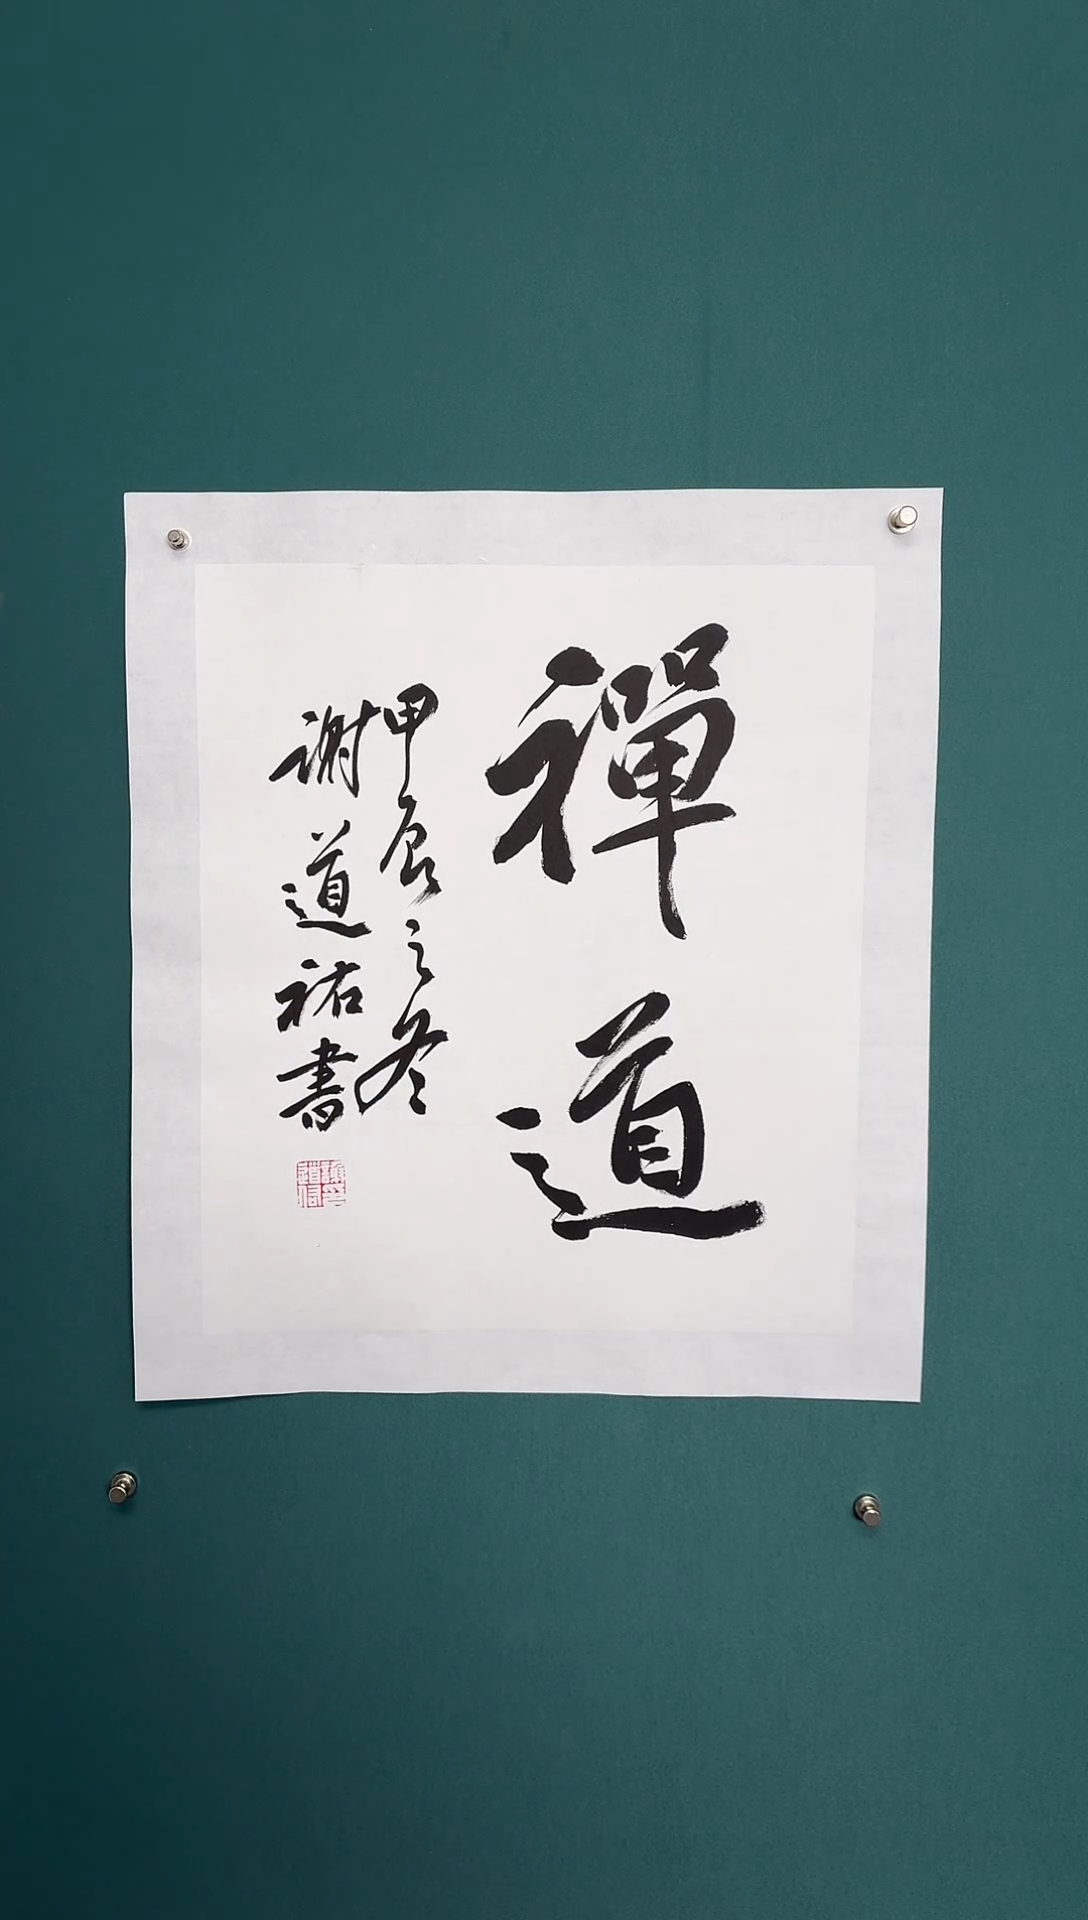 禪道
甲辰之冬
謝道祐書